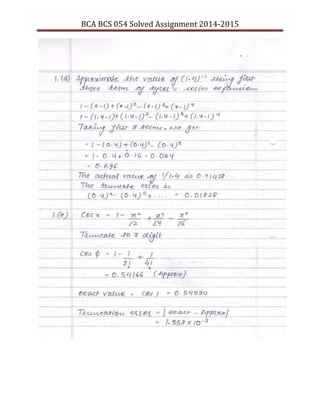 BCA BCS 054 Solved Assignment 2014-2015
1.(d) Approximate the value of (1.4)⁻¹ using first
three terms of
series expansion
1-(x-1)+(x-1)²-(x-1)³+(x-1)⁴
1-(1.4-1)+(1.4-1)²-(1.4-1)³+(1.4-1)⁴
Taking first 3 terms, we get
= 1-(0.4)+(0.4)²-(0.4)³
= 1-0.4+0.16-0.064
= 0.696
The actual value of 1/1.4 is 0.71428...
The truncate error is
(0.4)⁴-(0.4)⁵+.... = 0.01828
1.(e) Cos x = 1- x²/⌊2 + x⁴/⌊4 - x⁶/⌊6
Truncate to 3 digit
cos φ = 1- 1/2! + 1/4!
= 0.54166 (Approx)
exact value = Cos 1 = 0.54030
Truncation error = |exact - Approx|
= 1.358×10⁻³